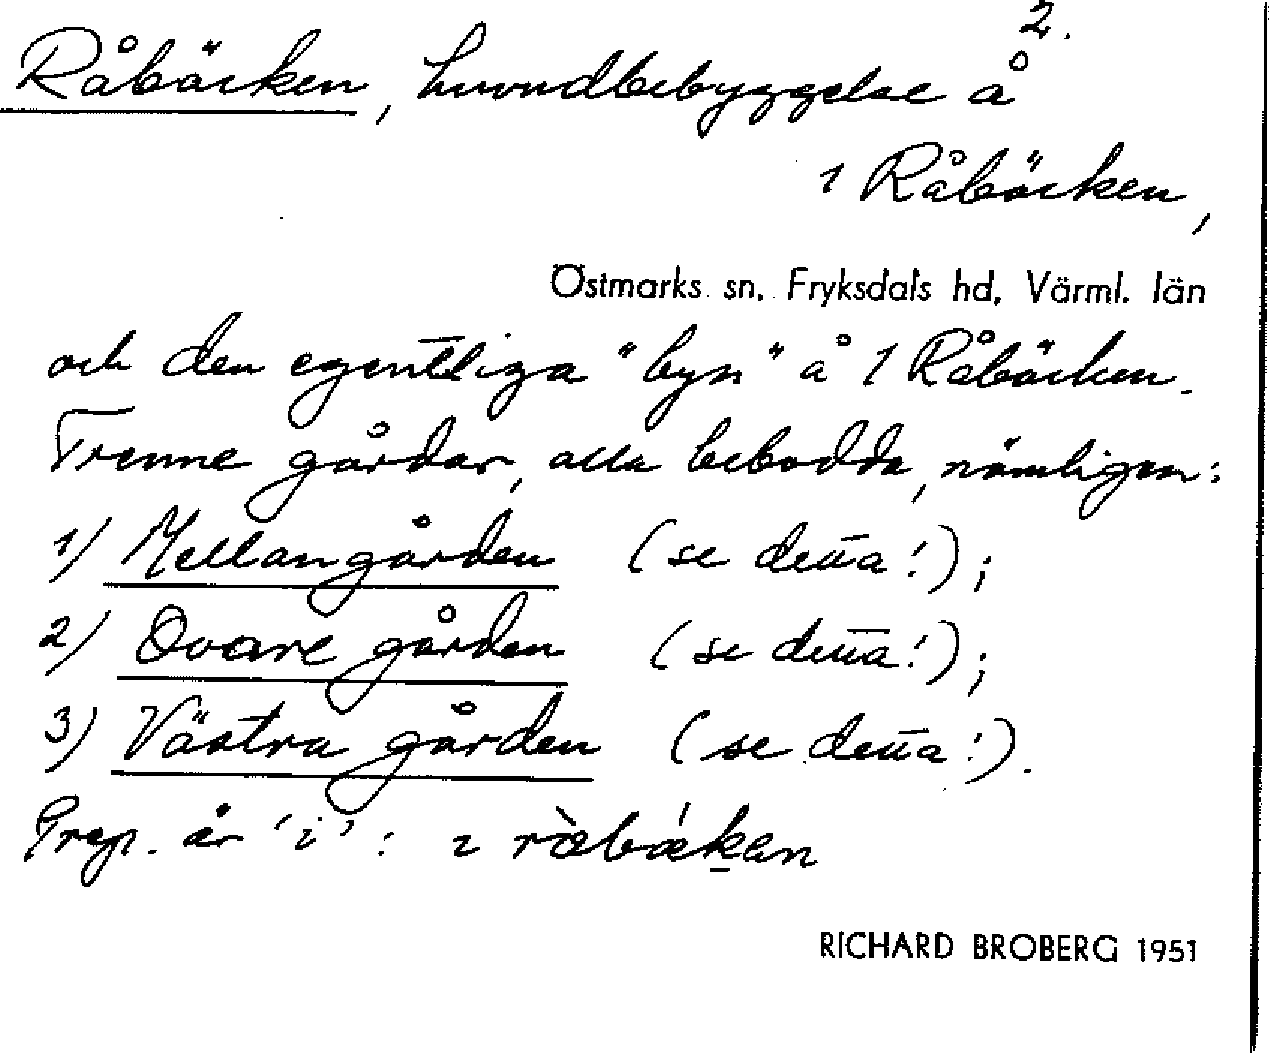 2.
Råbäcken, huvudbebyggelse å
1 Råbäcken,
Östmarks sn, Fryksdals hd, Värml. län
och den egentliga "byn" å 1 Råbäcken.
Trenne gårdar, alla bebodda, nämligen:
1) Mellangården (se detta!);
2) Ovare gården (se detta!);
3) Västra gården (se detta!).
Prep. är 'i': ı
RICHARD BROBERG 1951